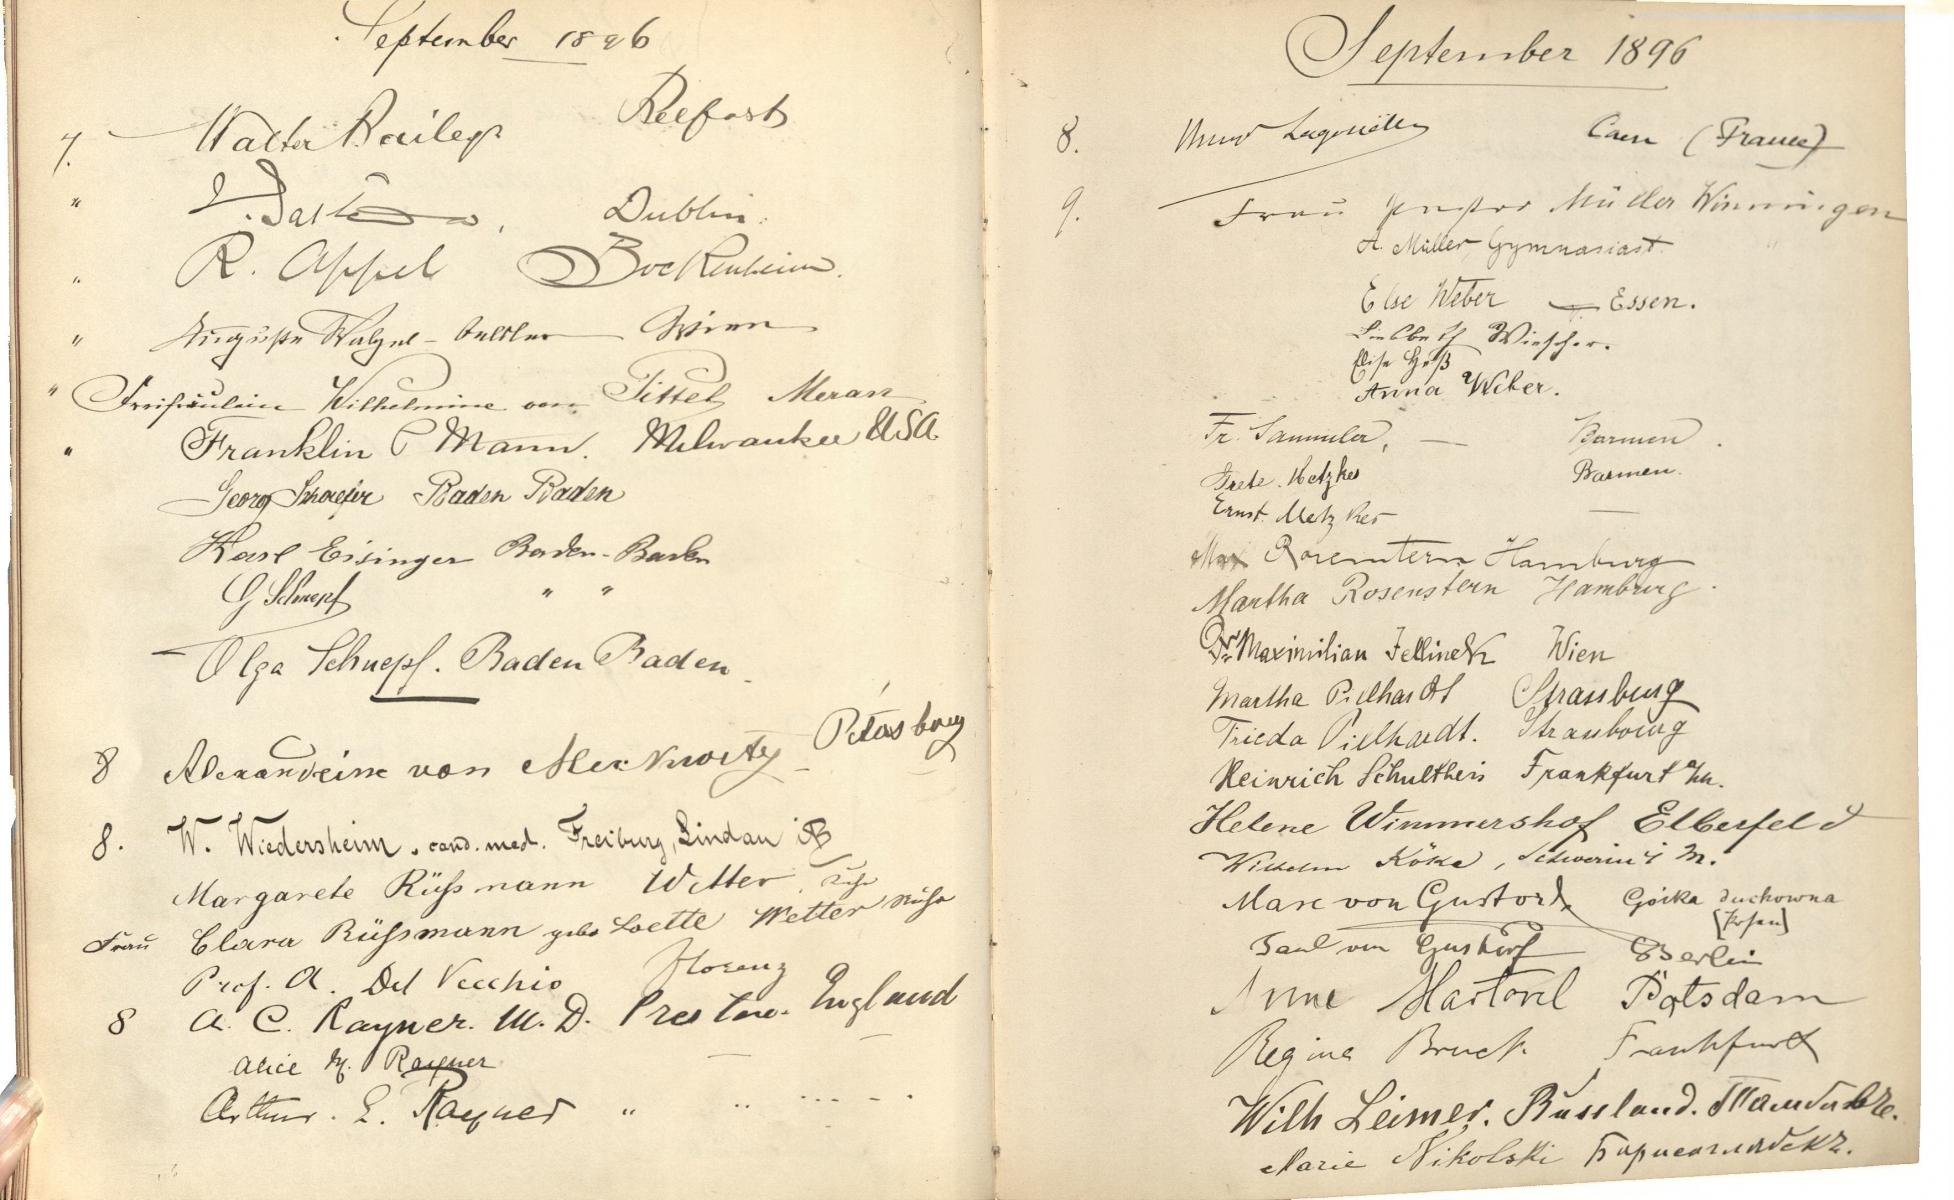 September 1896
7. Walter Bailey Belfast
" Dublin.
" R. Appel Bockenheim.
" Auguste Walzel - Wien
" Freifräulein Wilhelmine von Tittel Meran
" Franklin P Mann. Milwaukee USA.
Georg Schaefer Baden Baden
Karl Eisinger Baden-Baden
G Schnepf " "
Olga Schnepf. Baden Baden
8 Alexandrine von Petersburg
8. W. Wiedersheim, cand. med. Freiburg, Lindau i/B
Margarete Rüßmann Wetter Ruhr
Frau Clara Rüßmann geb. Loette Wetter Ruhr
Prof. A. Del Vecchio Florenz
8 A. C. Rayner. M. D. Preston. England
Alice M. Rayner —
Arthur. E. Rayner "
September 1896
8. Caen (France)
9. Frau Pastor Müller Winningen
A. Müller Gymnasiast
Else Weber — Essen.
Liesbeth Wiescher.
Elise Höß
Anna Weber.
Fr. Sammler, — Barmen.
Grete Metzkes Barmen.
Ernst Metzkes —
Max Rosenstern Hamburg
Martha Rosenstern Hamburg.
Dr. Maximilian Jellinek Wien
Martha Pielhardt Strassburg
Frieda Pielhardt. Strassburg
Heinrich Schultheis Frankfurt a/m.
Helene Wimmershof Elberfeld
Wilhelm Köke, Schwerin i M.
Marc von Gustorf Górka duchowna
[Posen]
Paul von Gustorf Berlin
Anne Martorel Potsdam
Regina Bruck. Frankfurt
Wilh Leimer. Russland. Тамбовъ.
Marie Nikolski Борисоглебскъ.